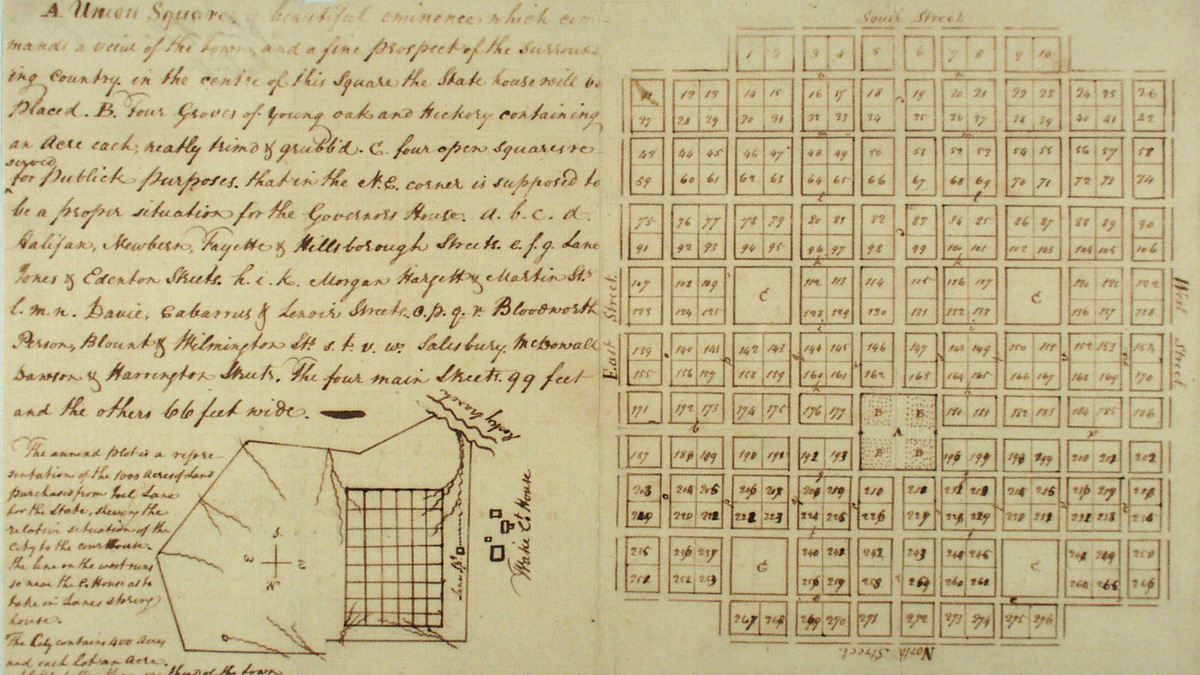 A Union Square, a beautiful eminence which com-
mands a view of the town, and a fine prospect of the surround
ing Country, in the centre of this Square the State house will be
placed. B. Four Groves of Young oak and Hickory containing
an Acre each, neatly trimd & grubb'd. C. four open squares re
served
for Publick Purposes. that in the N.E. corner is supposed to
be a proper situation for the Governors House. a. b. c. d.
Halifax, Newbern, Fayette & Hillsborough Streets. e. f. g. Lane
Jones & Edenton Streets. h. i. k. Morgan Hargett & Martin Sts
l. m. n. Davie, Cabarrus & Lenoir Streets. o. p. q. r. Bloodworth
Person, Blount & Wilmington Sts s. t. v. w. Salesbury, McDowall
Dawson & Harrington Streets. The four main Streets. 99 feet
and the others 66 feet wide.
The annexd plot is a repre
sentation of the 1000 Acres of Land
purchased from Joel Lane
for the State, shewing the
relative situation of the
City to the court House.
the line on the west runs
so near the C. House as to
take in Lanes spring
house.
The City contains 400 Acres
and each Lot an Acre.
Rocky branch
Wake Ct House
South Street
1 2 3 4 5 6 7 8 9 10
11 12 13 14 15 16 17 18 19 20 21 22 23 24 25 26
27 28 29 30 31 32 33 34 35 36 37 38 39 40 41 42
43 44 45 46 47 48 49 50 51 52 53 54 55 56 57 58
59 60 61 62 63 64 65 66 67 68 69 70 71 72 73 74
75 76 77 78 79 80 81 82 83 84 85 86 87 88 89 90
91 92 93 94 95 96 97 98 99 100 101 102 103 104 105 106
107 108 109 C 112 113 114 115 116 117 C 120 121 122
123 124 125 128 129 130 131 132 133 136 137
139 140 141 142 143 144 145 146 147 148 149 150 151 152 153 154
155 156 157 158 159 160 161 162 163 164 165 166 167 168 169 170
171 172 173 174 175 176 177 B B 180 181 182 183 184 185 186
A
187 188 189 190 191 192 193 B B 196
East Street
West Street
C C
267 268 269 270 271 272 273 274 275 276
North Street